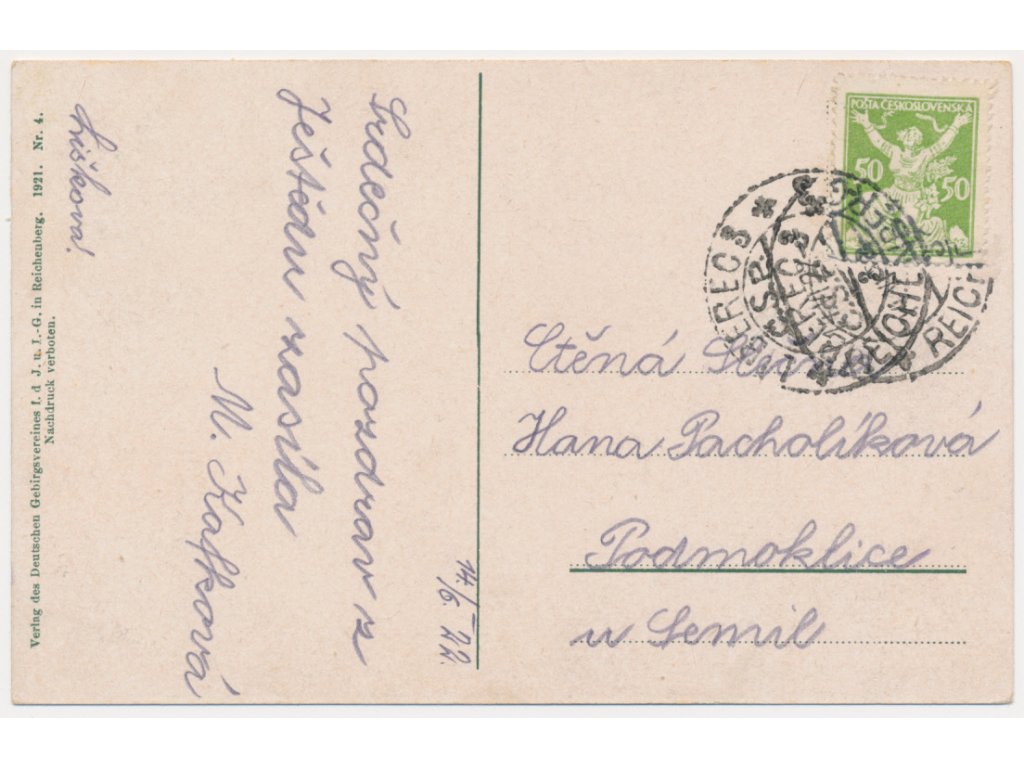 14./6. 22.
Srdečný pozdrav z
Ještědu zasílá
M. Kafková
Lišková!
Verlag des Deutschen Gebirgsvereines f. d. J. u. I.-G. in Reichenberg. 1921. Nr. 4.
Nachdruck verboten.
POŠTA ČESKOSLOVENSKÁ
50 50
LIBEREC 3
ČSR
REICHE
Ctěná
Hana Pacholíková
Podmoklice
u Semil